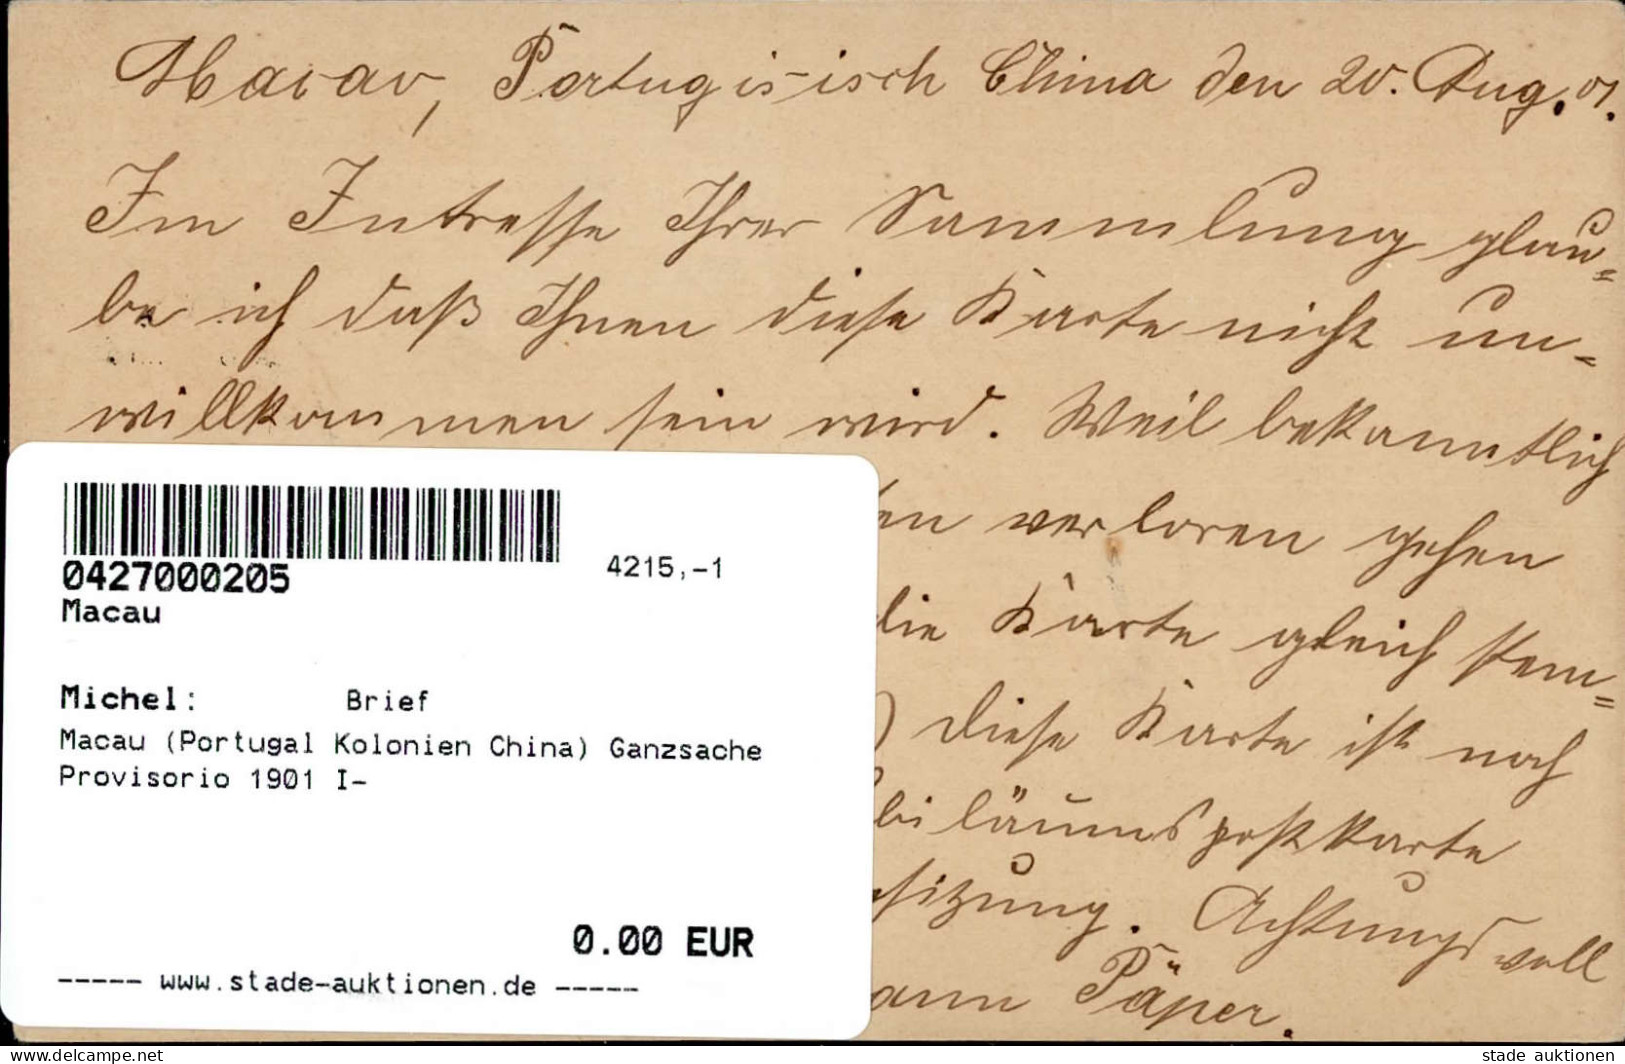 Macao, Portugisisch China den 20. Aug. 01.
Im Intresse Ihrer Sammlung glau=
be ich daß Ihnen diese Karte nicht un=
willkommen sein wird. Weil bekanntlich
en verloren gehen
die Karte gleich stem=
) diese Karte ist noch
biläumspostkarte
sitzung. Achtungsvoll
ann Päper.
0427000205
4215,-1
Macau
Michel: Brief
Macau (Portugal Kolonien China) Ganzsache
Provisorio 1901 I-
0.00 EUR
----- www.stade-auktionen.de -----
www.delcampe.net
stade auktionen